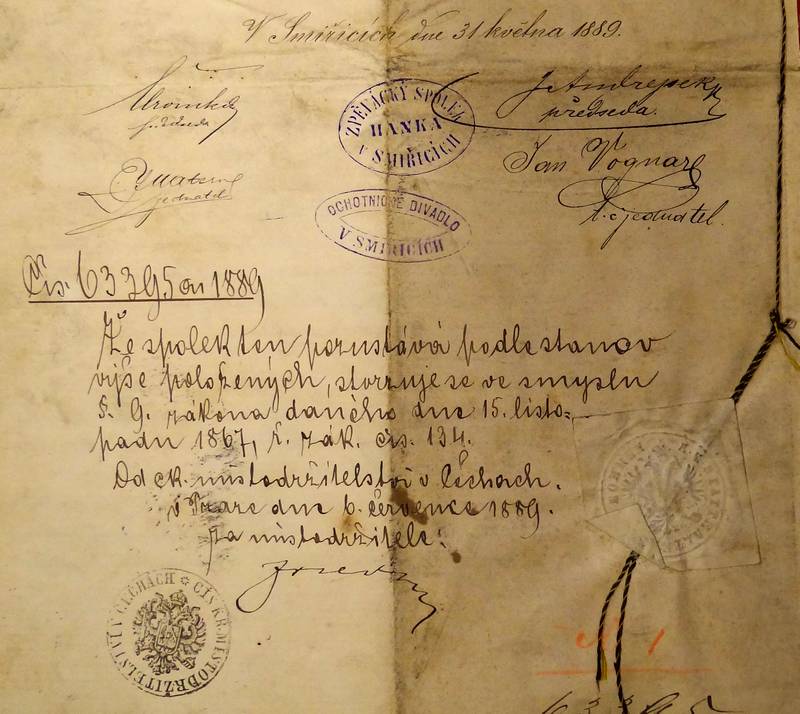 V Smiřicích dne 31 května 1889.
předseda
jednatel
ZPĚVÁCKÝ SPOLEK
HANKA
V SMIŘICÍCH
předseda.
Jan Vognar
t. č. jednatel.
OCHOTNICKÉ DIVADLO
V SMIŘICÍCH
Čís. 63395 ai 1889
Že spolek ten pozustává podle stanov
výše položených, stvrzuje se ve smyslu
§. 9. zákona daného dne 15. listo-
padu 1867, ř. zák. čís. 134.
Od c k. místodržitelství v Čechach.
v Praze dne 6. července 1889.
Za místodržitele:
CÍS. KR. MÍSTODRŽITELSTVÍ V ČECHÁCH
Č. 1
63395